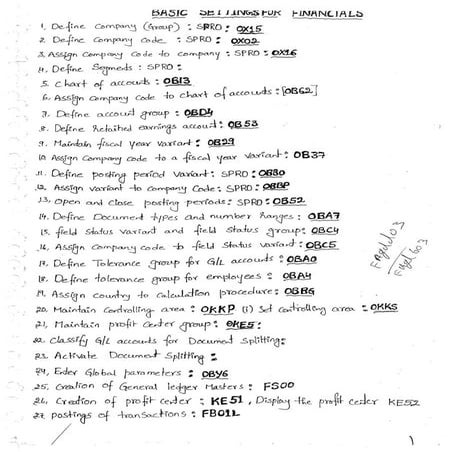 BASIC SETTINGS FOR FINANCIALS
1. Define Company (Group) : SPRO: OX15
2. Define Company Code : SPRO: OX02
3. Assign Company Code to Company : SPRO: OX16
4. Define Segments : SPRO:
5. Chart of accounts : OB13
6. Assign Company Code to Chart of accounts : [OB62]
7. Define account group : OBD4
8. Define Retained earnings account : OB53
9. Maintain fiscal year variant : OB29
10 Assign Company code to a fiscal year Variant : OB37
11. Define posting period Variant : SPRO: OBBO
12. Assign Variant to Company Code : SPRO: OBBP
13. Open and Close posting periods : SPRO: OB52
14. Define Document types and number Ranges : OBA7
15. field Status Variant and field Status group : OBC4
16. Assign Company Code to field Status Variant : OBC5
17. Define Tolerance group for G/L accounts : OBA0
18. Define tolerance group for employees : OBA4
19. Assign Country to Calculation procedure : OBBG
20. Maintain Controlling area : OKKP (i) Set Controlling area : OKKS
21. Maintain profit Center group : OKE5:
22. Classify G/L accounts for Document Splitting:
23. Activate Document Splitting :
24. Enter Global parameters : OBY6
25. Creation of General ledger Masters : FS00
26. Creation of profit center : KE51, Display the profit center KE52
27. postings of transactions : FB01L